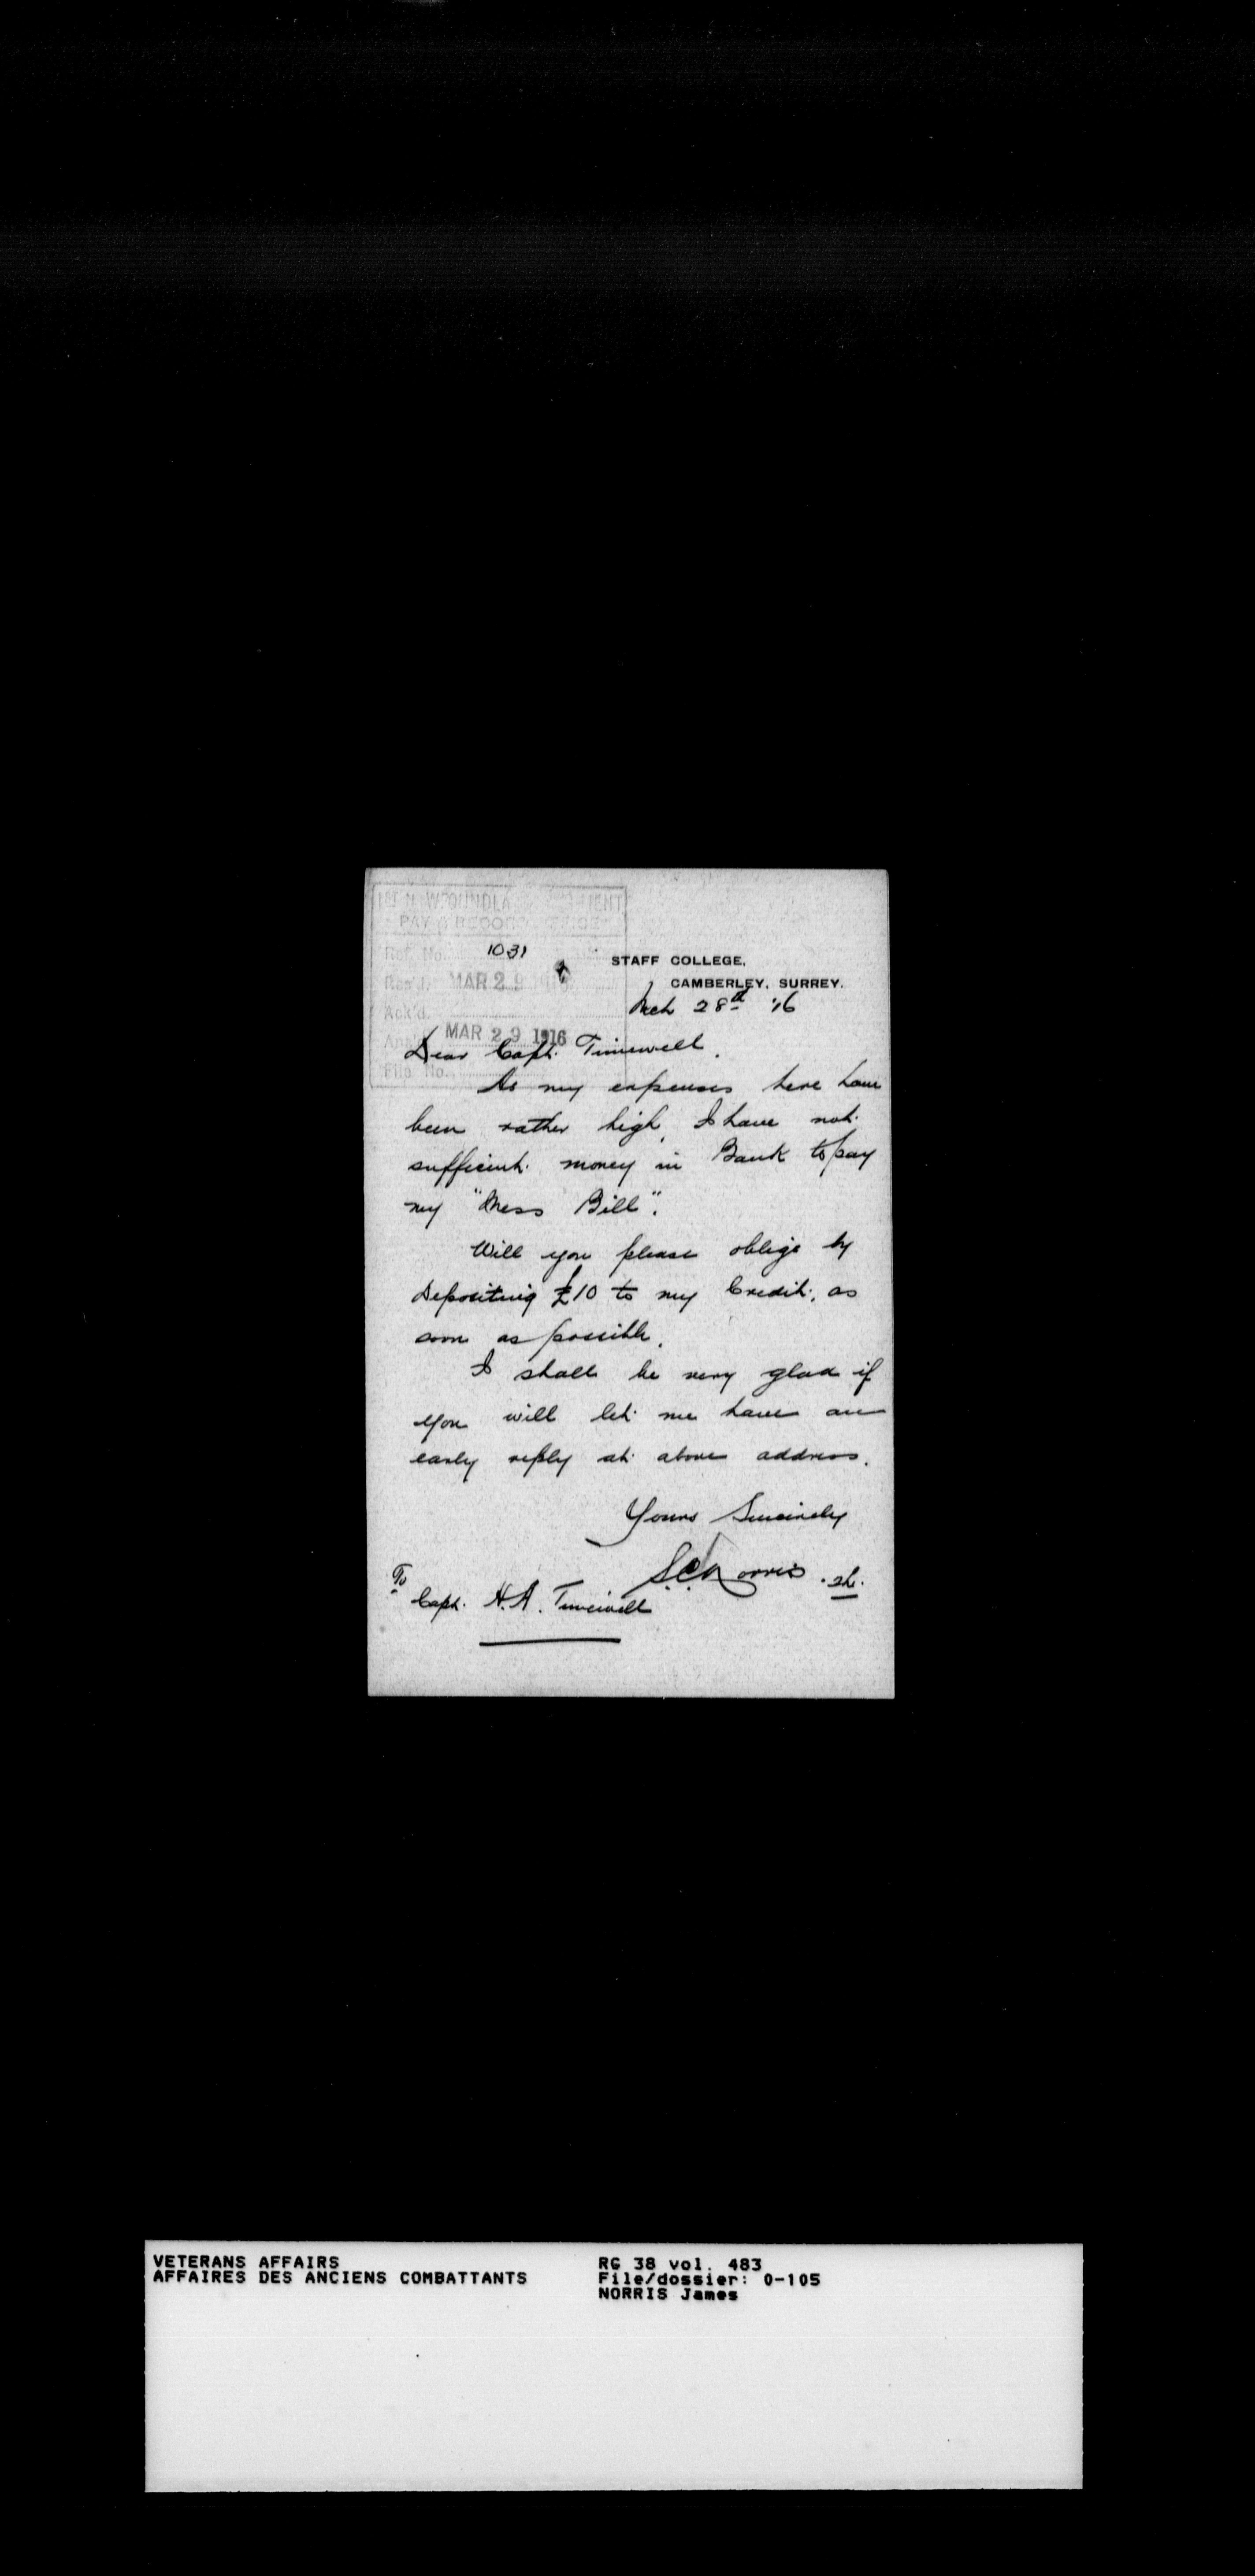 1st NEWFOUNDLA MENT
PAY & RECORD OFFICE
Ref. No. 1031
Rec'd. MAR 29 1916
Ack'd.
MAR 29 1916
File No.
STAFF COLLEGE,
CAMBERLEY, SURREY.
Mch 28th '16
Dear Capt. Timewell.
As my expenses here have
been rather high, I have not
sufficient money in Bank to pay
my "Mess Bill".
Will you please oblige by
depositing £10 to my Credit, as
soon as possible.
I shall be very glad if
you will let me have an
early reply at above address.
Yours Sincerely
Norris
To
Capt. H.A. Timewell
VETERANS AFFAIRS
AFFAIRES DES ANCIENS COMBATTANTS
RG 38 vol. 483
File/dossier: 0-105
NORRIS James